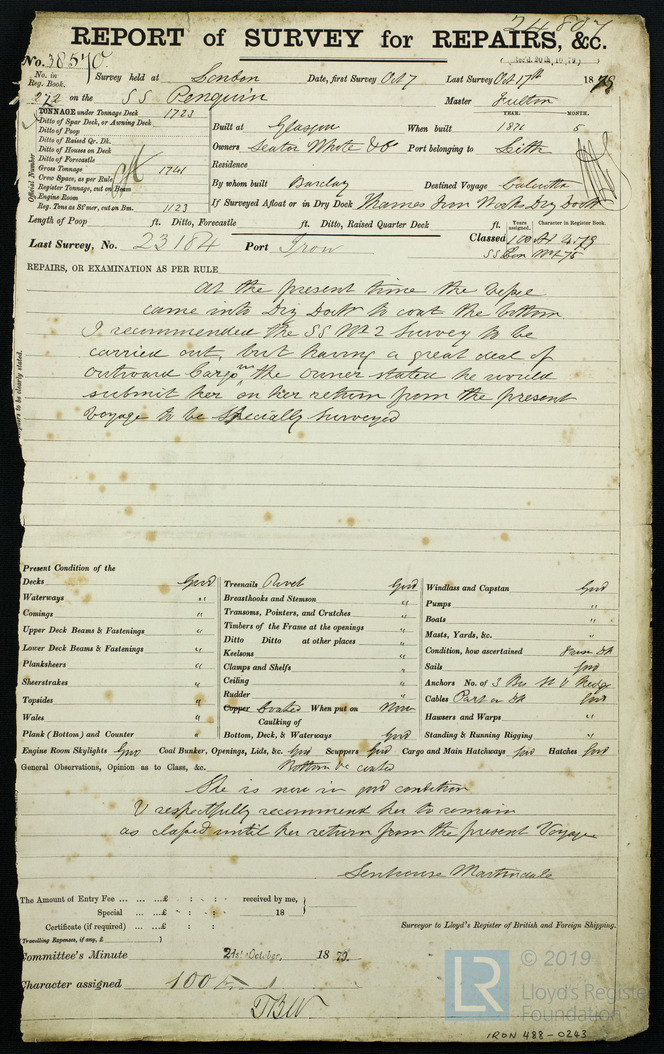 24807
REPORT of SURVEY for REPAIRS, &c.
No. 38570
(Rec'd. 20th, 10 79)
No. in Reg. Book. Survey held at London Date, first Survey Oct 7 Last Survey Oct. 17th 1879
272 on the SS Penguin Master Fulton
TONNAGE under Tonnage Deck 1723
Ditto of Spar Deck, or Awning Deck
Ditto of Poop
Ditto of Raised Qr. Dk.
Ditto of Houses on Deck
Ditto of Forecastle
Gross Tonnage 1741
Crew Space, as per Rule
Register Tonnage, cut on Beam
Engine Room
Reg. Tons as St'mer, cut on Bm. 1123
Official Number
YEAR. MONTH.
Built at Glasgow When built 1871 5
Owners Seator White & Co Port belonging to Leith
Residence
By whom built Barclay Destined Voyage Calcutta
If Surveyed Afloat or in Dry Dock Thames Iron Works Dry Dock
Length of Poop ft. Ditto, Forecastle ft. Ditto, Raised Quarter Deck ft.
Years assigned. Character in Register Book.
Last Survey, No. 23184 Port Iron Classed 100 A1
SS Lon No1-75
REPAIRS, OR EXAMINATION AS PER RULE
At the present time the Vessel
came into Dry Dock to coat the bottom
I recommended the SS No 2 Survey to be
carried out, but having a great deal of
outward Cargo in the owner stated he would
submit her on her return from the present
Voyage to be Specially Surveyed
to be clearly stated.
Present Condition of the
Decks Good
Waterways "
Comings "
Upper Deck Beams & Fastenings "
Lower Deck Beams & Fastenings "
Planksheers "
Sheerstrakes "
Topsides "
Wales "
Plank (Bottom) and Counter "
Treenails Rivet Good
Breasthooks and Stemson "
Transoms, Pointers, and Crutches "
Timbers of the Frame at the openings "
Ditto Ditto at other places "
Keelsons "
Clamps and Shelfs "
Ceiling "
Rudder "
Copper Coated When put on Now
Caulking of
Bottom, Deck, & Waterways Good
Windlass and Capstan Good
Pumps "
Boats "
Masts, Yards, &c. "
Condition, how ascertained From Dk
Sails Good
Anchors No. of 3 Brs
Cables Part on Dk Good
Hawsers and Warps "
Standing & Running Rigging "
Engine Room Skylights Good Coal Bunker, Openings, Lids, &c. Good Scuppers Good Cargo and Main Hatchways Good Hatches Good
General Observations, Opinion as to Class, &c. Bottom be coated
She is now in good condition
I respectfully recommend her to remain
as classed until her return from the present Voyage
Senhouse Martindale
The Amount of Entry Fee ... ... £ : : received by me,
Special ... ... £ : : 18
Certificate (if required) ... £ : :
(Travelling Expenses, if any, £ )
Surveyor to Lloyd's Register of British and Foreign Shipping.
Committee's Minute 21st October, 1879.
Character assigned 100
LR
© 2019
Lloyd's Register
Foundation
IRON 488-0243